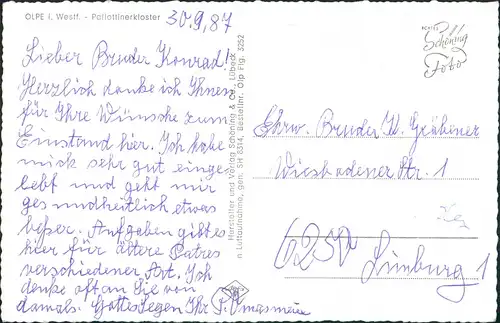 OLPE i. Westf. - Pallottinerkloster
30.9,87
Lieber Bruder Konrad!
Herzlich danke ich Ihnen
für Ihre Wünsche zum
Einstand hier. Ich habe
mich sehr gut einge
lebt und geht mir
gesundheitlich etwas
beßer. Aufgaben gibt es
hier für ältere Patres
verschiedener Art. Ich
denke oft an Sie von
damals. Gottes Segen Ihr P.
Hersteller und Verlag Schöning & Co., Lübeck
n Luftaufnahme, gen. SH 6314, Bestellnr. Olp Flg. 3252
Schöning
Foto
Ehrw. Bruder K. Gräbener
Wiesbadener Str. 1
6250 Limburg 1